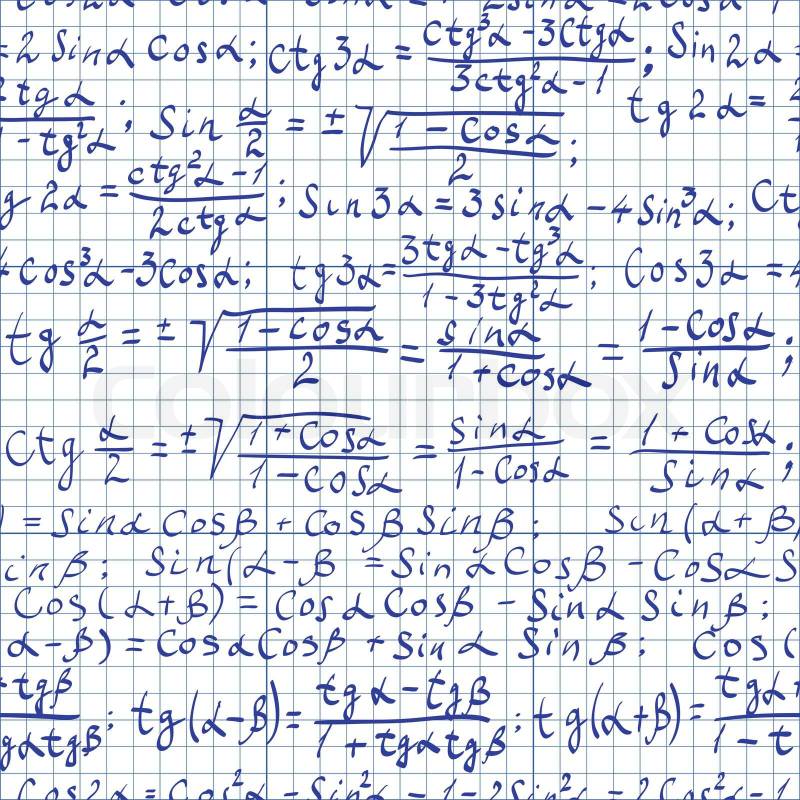 = 2 Sinα Cosα; ctg3α = (ctg³α - 3ctgα)/(3ctg²α - 1); Sin2α =
tgα/(1 - tg²α); Sin α/2 = ±√(1 - Cosα)/2; tg2α =
g2α = (ctg²α - 1)/(2ctgα); Sin3α = 3sinα - 4Sin³α; Ct
4cos³α - 3Cosα; tg3α = (3tgα - tg³α)/(1 - 3tg²α); Cos3α = 4
tg α/2 = ±√(1 - cosα)/2 = sinα/(1 + cosα) = (1 - Cosα)/Sinα;
Ctg α/2 = ±√(1 + Cosα)/(1 - Cosα) = Sinα/(1 - Cosα) = (1 + Cosα)/Sinα;
) = Sinα Cosβ + Cosβ Sinβ; Sin(α+β)
inβ; Sin(α - β = Sinα Cosβ - Cosα S
Cos(α+β) = Cosα Cosβ - Sinα Sinβ;
α-β) = Cosα Cosβ + Sinα Sinβ; Cos(
- tgβ/gαtgβ; tg(α-β) = (tgα - tgβ)/(1 + tgαtgβ); tg(α+β) = tgα/(1 - t
Cos2α = Cos²α - Sin²α = 1 - 2Sin²α = 2Cos²α - 1